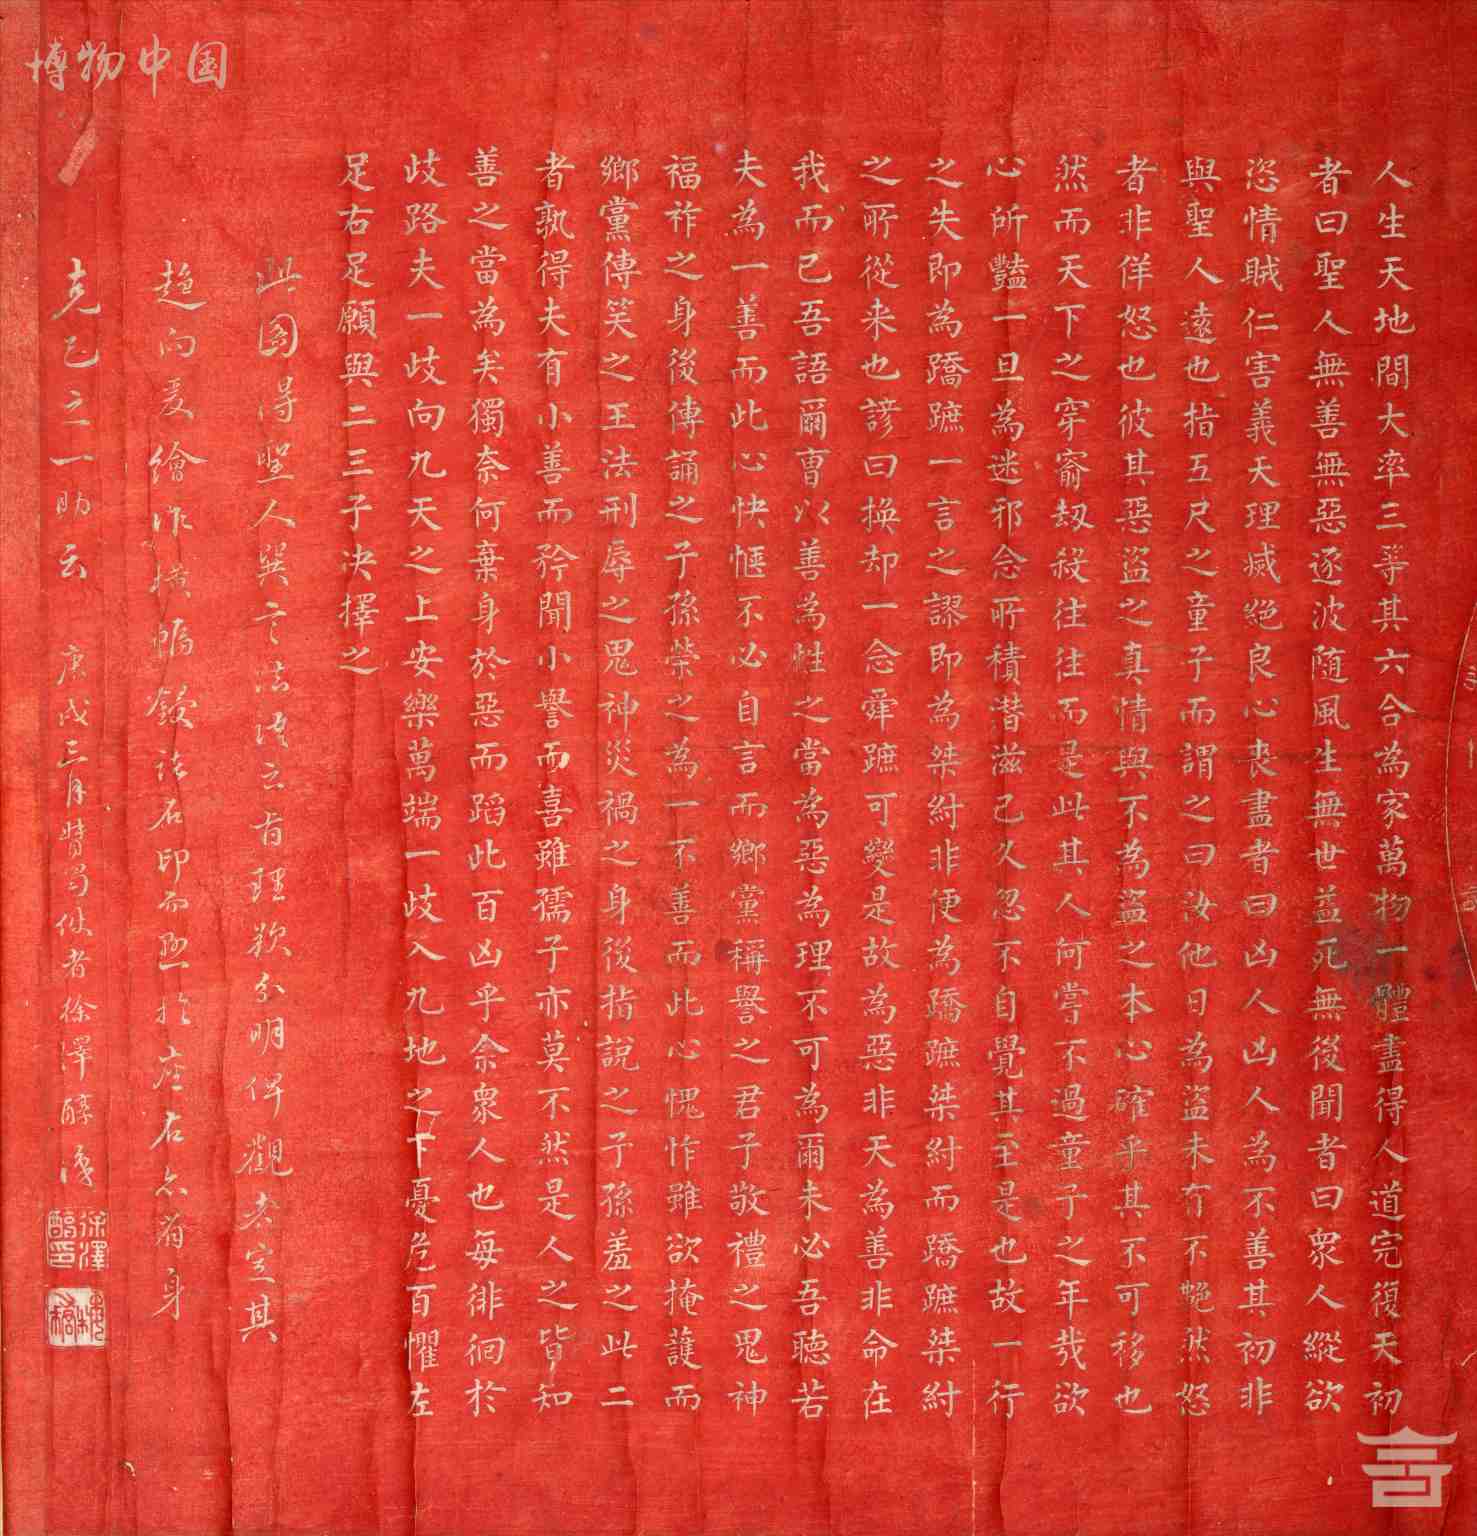 博物中国
人生天地間大率三等其六合為家萬物一體盡得人道完復天初
者曰聖人無善無惡逐波随風生無世益死無後聞者曰衆人縱欲
恣情賊仁害義天理滅絕良心丧盡者曰凶人凶人為不善其初非
與聖人遠也指五尺之童子而謂之曰汝他日為盜未有不艴然怒
者非佯怒也彼其惡盜之真情與不為盜之本心確乎其不可移也
然而天下之穿窬劫殺往往而是此其人何嘗不過童子之年哉欲
心所豔一旦為迷邪念所積潜滋已久忽不自覺其至是也故一行
之失即為蹻蹠一言之謬即為桀紂非便為蹻蹠桀紂而蹻蹠桀紂
之所從来也諺曰换却一念舜蹠可變是故為惡非天為善非命在
我而已吾語爾曺以善為性之當為惡為理不可為爾未必吾聽若
夫為一善而此心快惬不必自言而鄉黨稱譽之君子敬禮之鬼神
福祚之身後傳誦之子孫榮之為一不善而此心愧怍雖欲掩護而
鄉黨傳笑之王法刑辱之鬼神災禍之身後指說之子孫羞之此二
者孰得夫有小善而矜聞小譽而喜雖孺子亦莫不然是人之皆知
善之當為矣獨奈何棄身於惡而蹈此百凶乎余衆人也每徘徊於
歧路夫一歧向九天之上安樂萬端一歧入九地之下憂危百懼左
足右足願與二三子决擇之
此圖得聖人巽言法語之旨理欲分明俾觀者定其
趨向爰繪作横幅鋟諸石印而懸於座右亦省身
克己之一助云 庚戌三月贊蜀使者徐澤醇識
徐澤醇印